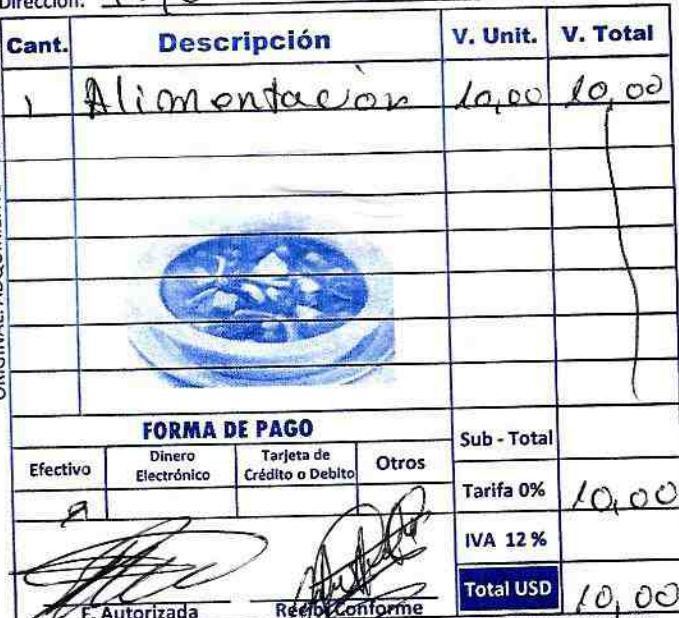 Dirección:
Cant. Descripción V. Unit. V. Total
1 Alimentación 10,00 10,00
FORMA DE PAGO
Efectivo Dinero Electrónico Tarjeta de Crédito o Debito Otros
Sub - Total
Tarifa 0% 10,00
IVA 12 %
Total USD 10,00
F. Autorizada Recibí Conforme